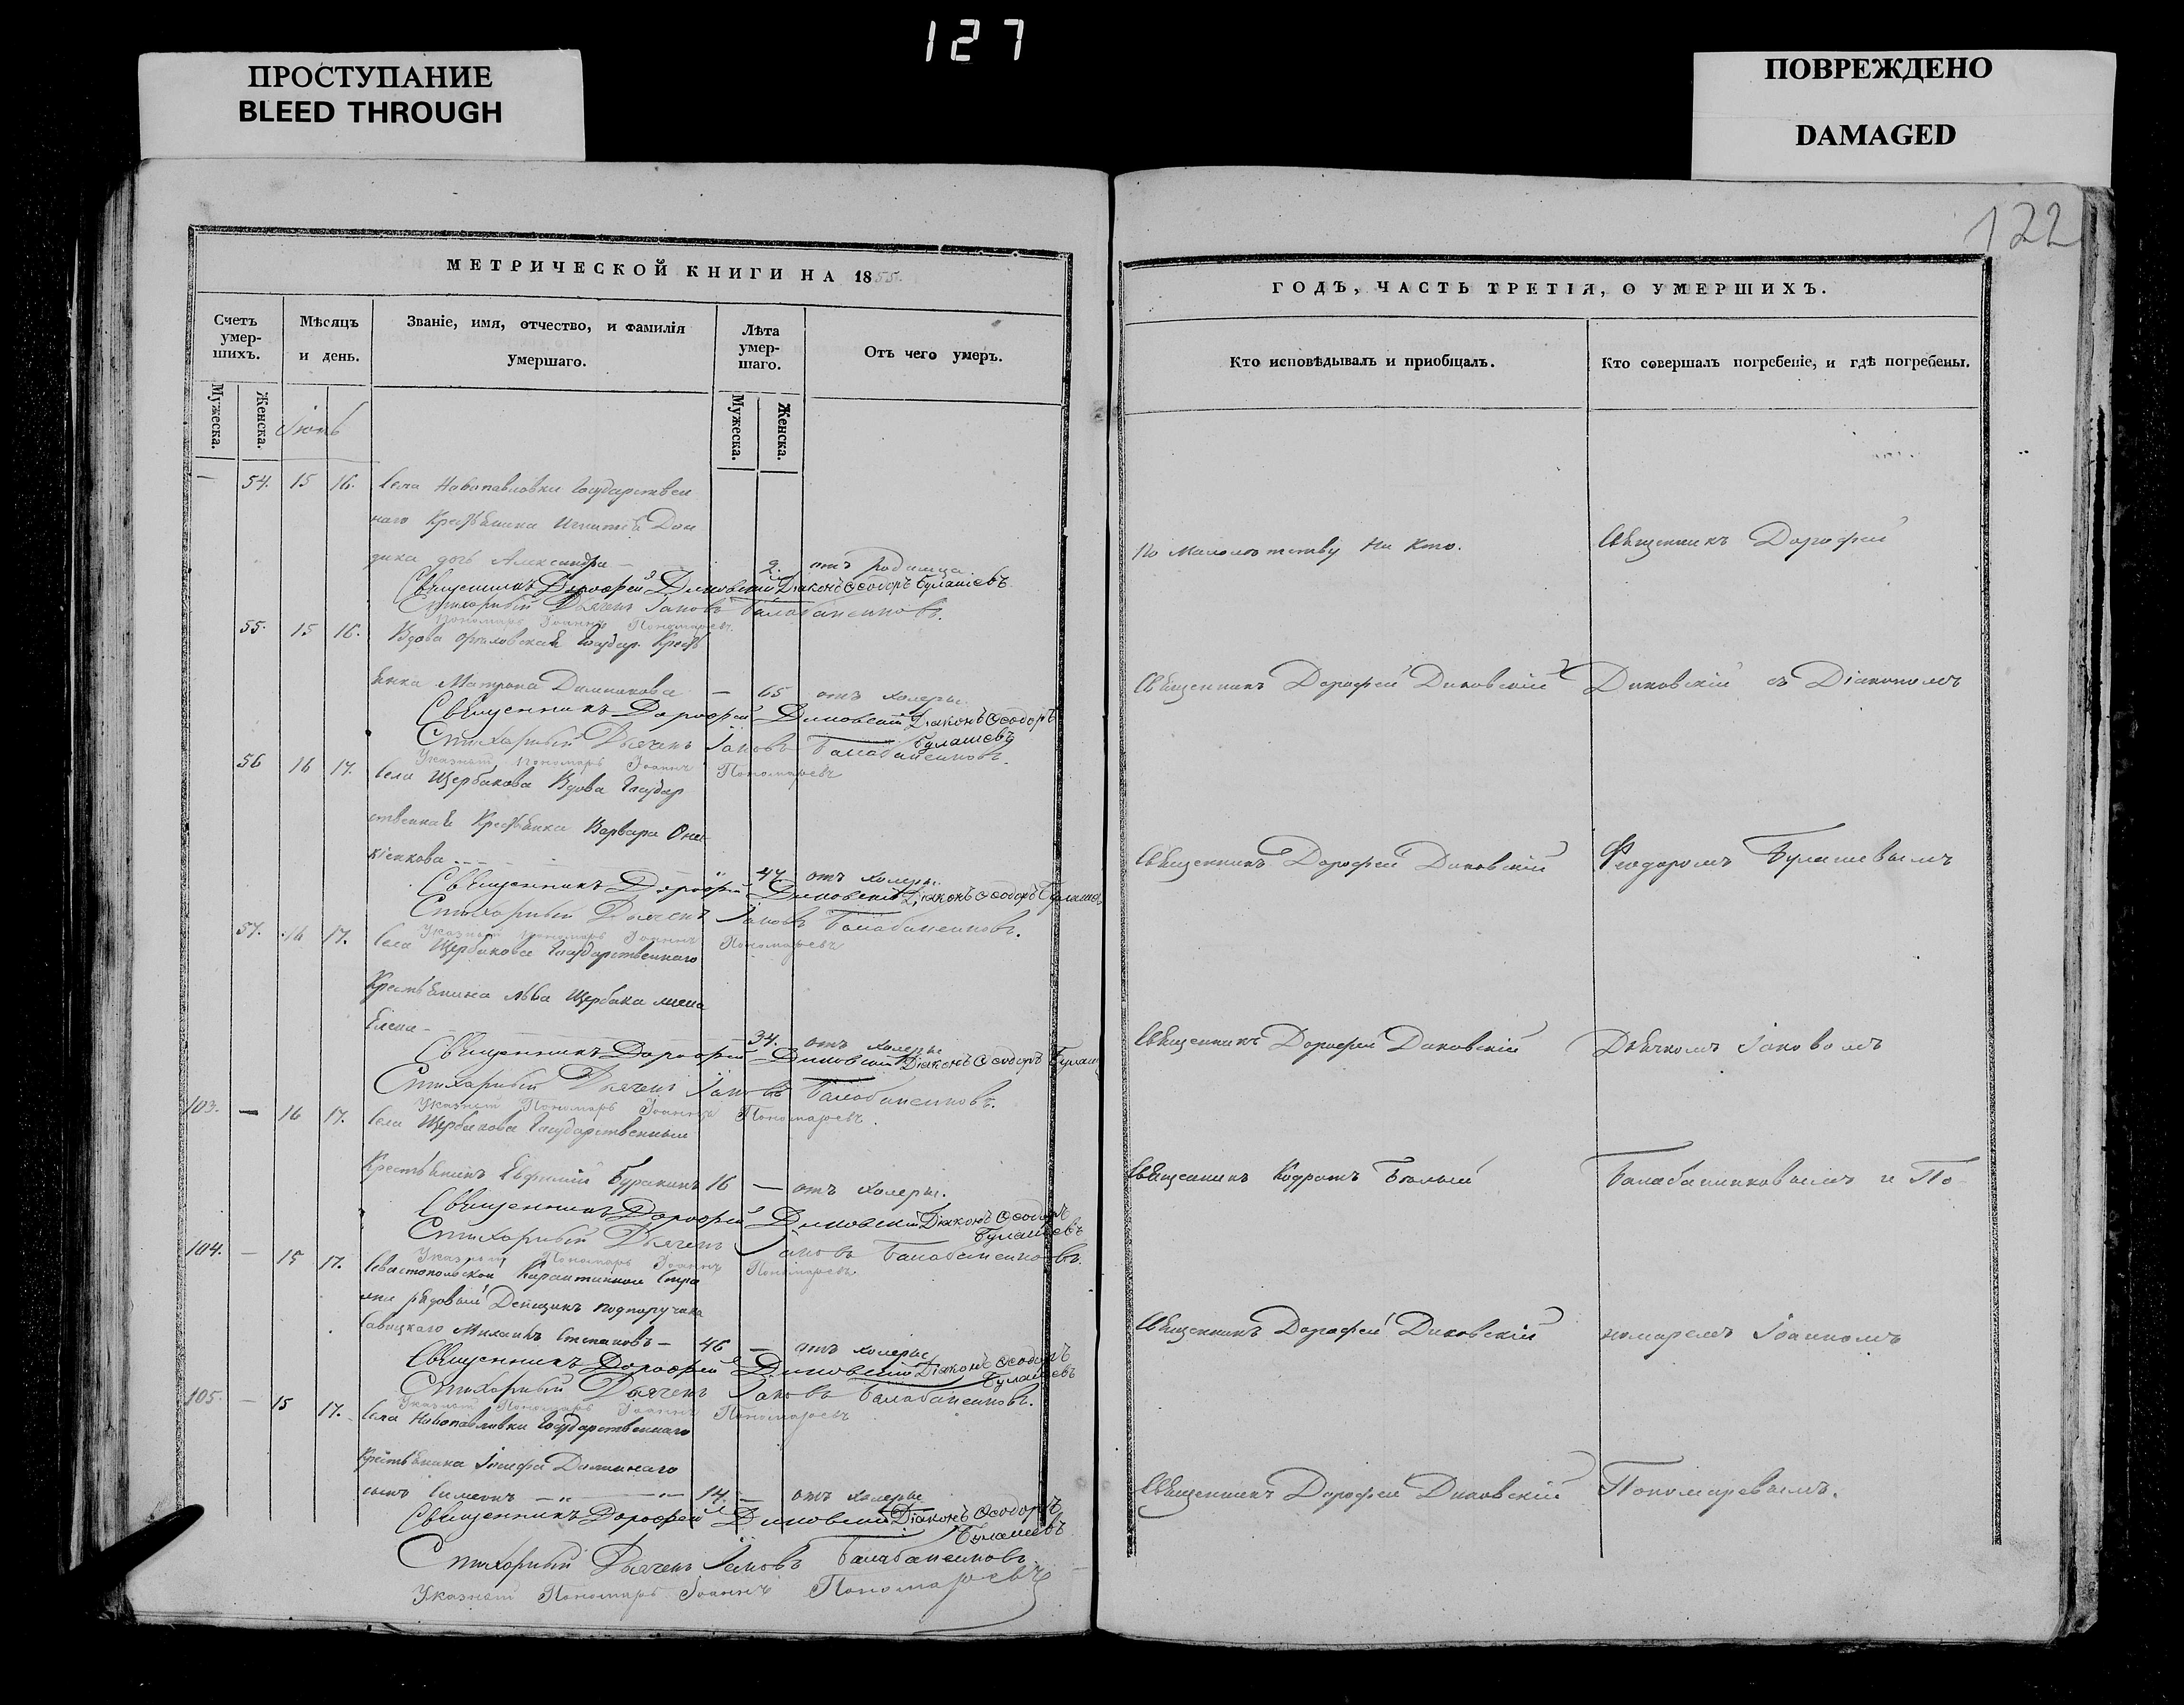 127
ПРОСТУПАНИЕ
BLEED THROUGH
ПОВРЕЖДЕНО
DAMAGED
122
МЕТРИЧЕСКОЙ КНИГИ НА 1855.
Счетъ умер-шихъ.
Мѣсяцъ и день.
Званіе, имя, отчество, и фамилія умершаго.
Лѣта умер-шаго.
Отъ чего умеръ.
Мужеска.
Женска.
Мужеска.
Женска.
— 54. 15 16. Села Новопавловки Государствен
наго Крестьянина Игнатія Дон
дика дочь Александра — 2. отъ родимца
Священникъ Дорофей Диковскій Діаконъ Ѳеодоръ Булашевъ
Стихарный Дьячекъ Іаковъ Балабаненковъ.
Пономарь Іоаннъ Пономаревъ
55. 15 16. Вдова Государ. Кресть
янка Матрона — 65 отъ холеры.
Священникъ Дорофей Диковскій Діаконъ Ѳеодоръ
Булашевъ
Стихарный Дьячекъ Іаковъ Балабаненковъ.
Указный Пономарь Іоаннъ Пономаревъ
56 16 17. Села Щербакова Вдова Государ
ственная Крестьянка Варвара
47 отъ холеры.
Священникъ Дорофей Диковскій Діаконъ Ѳеодоръ Булашев
Стихарный Дьячекъ Іаковъ Балабаненковъ.
Указный Пономарь Іоаннъ Пономаревъ
57. 16 17. Села Щербакова Государственнаго
Крестьянина Льва Щербака жена
Елена — 34. отъ холеры
Священникъ Дорофей Диковскій Діаконъ Ѳеодоръ Булаш
Стихарный Дьячекъ Іаковъ Балабаненковъ.
Указный Пономарь Іоаннъ Пономаревъ.
103. — 16 17. Села Щербакова Государственный
Крестьянинъ Евфимій Буракинъ 16 — отъ холеры.
Священникъ Дорофей Диковскій Діаконъ Ѳеодоръ
Булашевъ
Стихарный Дьячекъ Іаковъ Балабаненковъ.
Указный Пономарь Іоаннъ Пономаревъ
104. — 15 17. Севастопольской Карантинной Стра
жи рядовый Денщикъ подпоручика
Савицкаго Степановъ — 46 — отъ холеры
Священникъ Дорофей Диковскій Діаконъ Ѳеодоръ
Булашевъ
Стихарный Дьячекъ Іаковъ Балабаненковъ.
Указный Пономарь Іоаннъ Пономаревъ
105. — 15 17. Села Новопавловки Государственнаго
Крестьянина Іосифа
сынъ Симеонъ — 14. — отъ холеры
Священникъ Дорофей Диковскій Діаконъ Ѳеодоръ
Булашевъ
Стихарный Дьячекъ Іаковъ Балабаненковъ
Указный Пономарь Іоаннъ Пономаревъ
ГОДЪ, ЧАСТЬ ТРЕТІЯ, О УМЕРШИХЪ.
Кто исповѣдывалъ и пріобщалъ.
Кто совершалъ погребеніе, и гдѣ погребены.
По малолѣтству ни кто.
Священникъ Дорофей
Священникъ Дорофей Диковскій
Диковскій съ Діакономъ
Священникъ Дорофей Диковскій
Феодоромъ Булашевымъ
Священникъ Дорофей Диковскій
Дьячкомъ Іаковомъ
Священникъ Кодратъ Бѣлый
Балабаненковымъ и По
Священникъ Дорофей Диковскій
номаремъ Іоанномъ
Священникъ Дорофей Диковскій
Пономаревымъ.